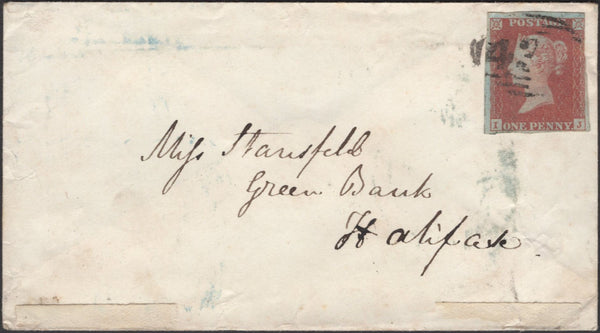 POSTAGE
42
I ONE PENNY J
Miss Stansfeld
Green Bank
Halifax